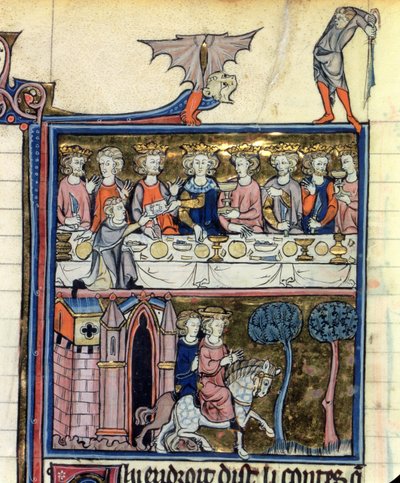 Chi endroit dist li contes q̄